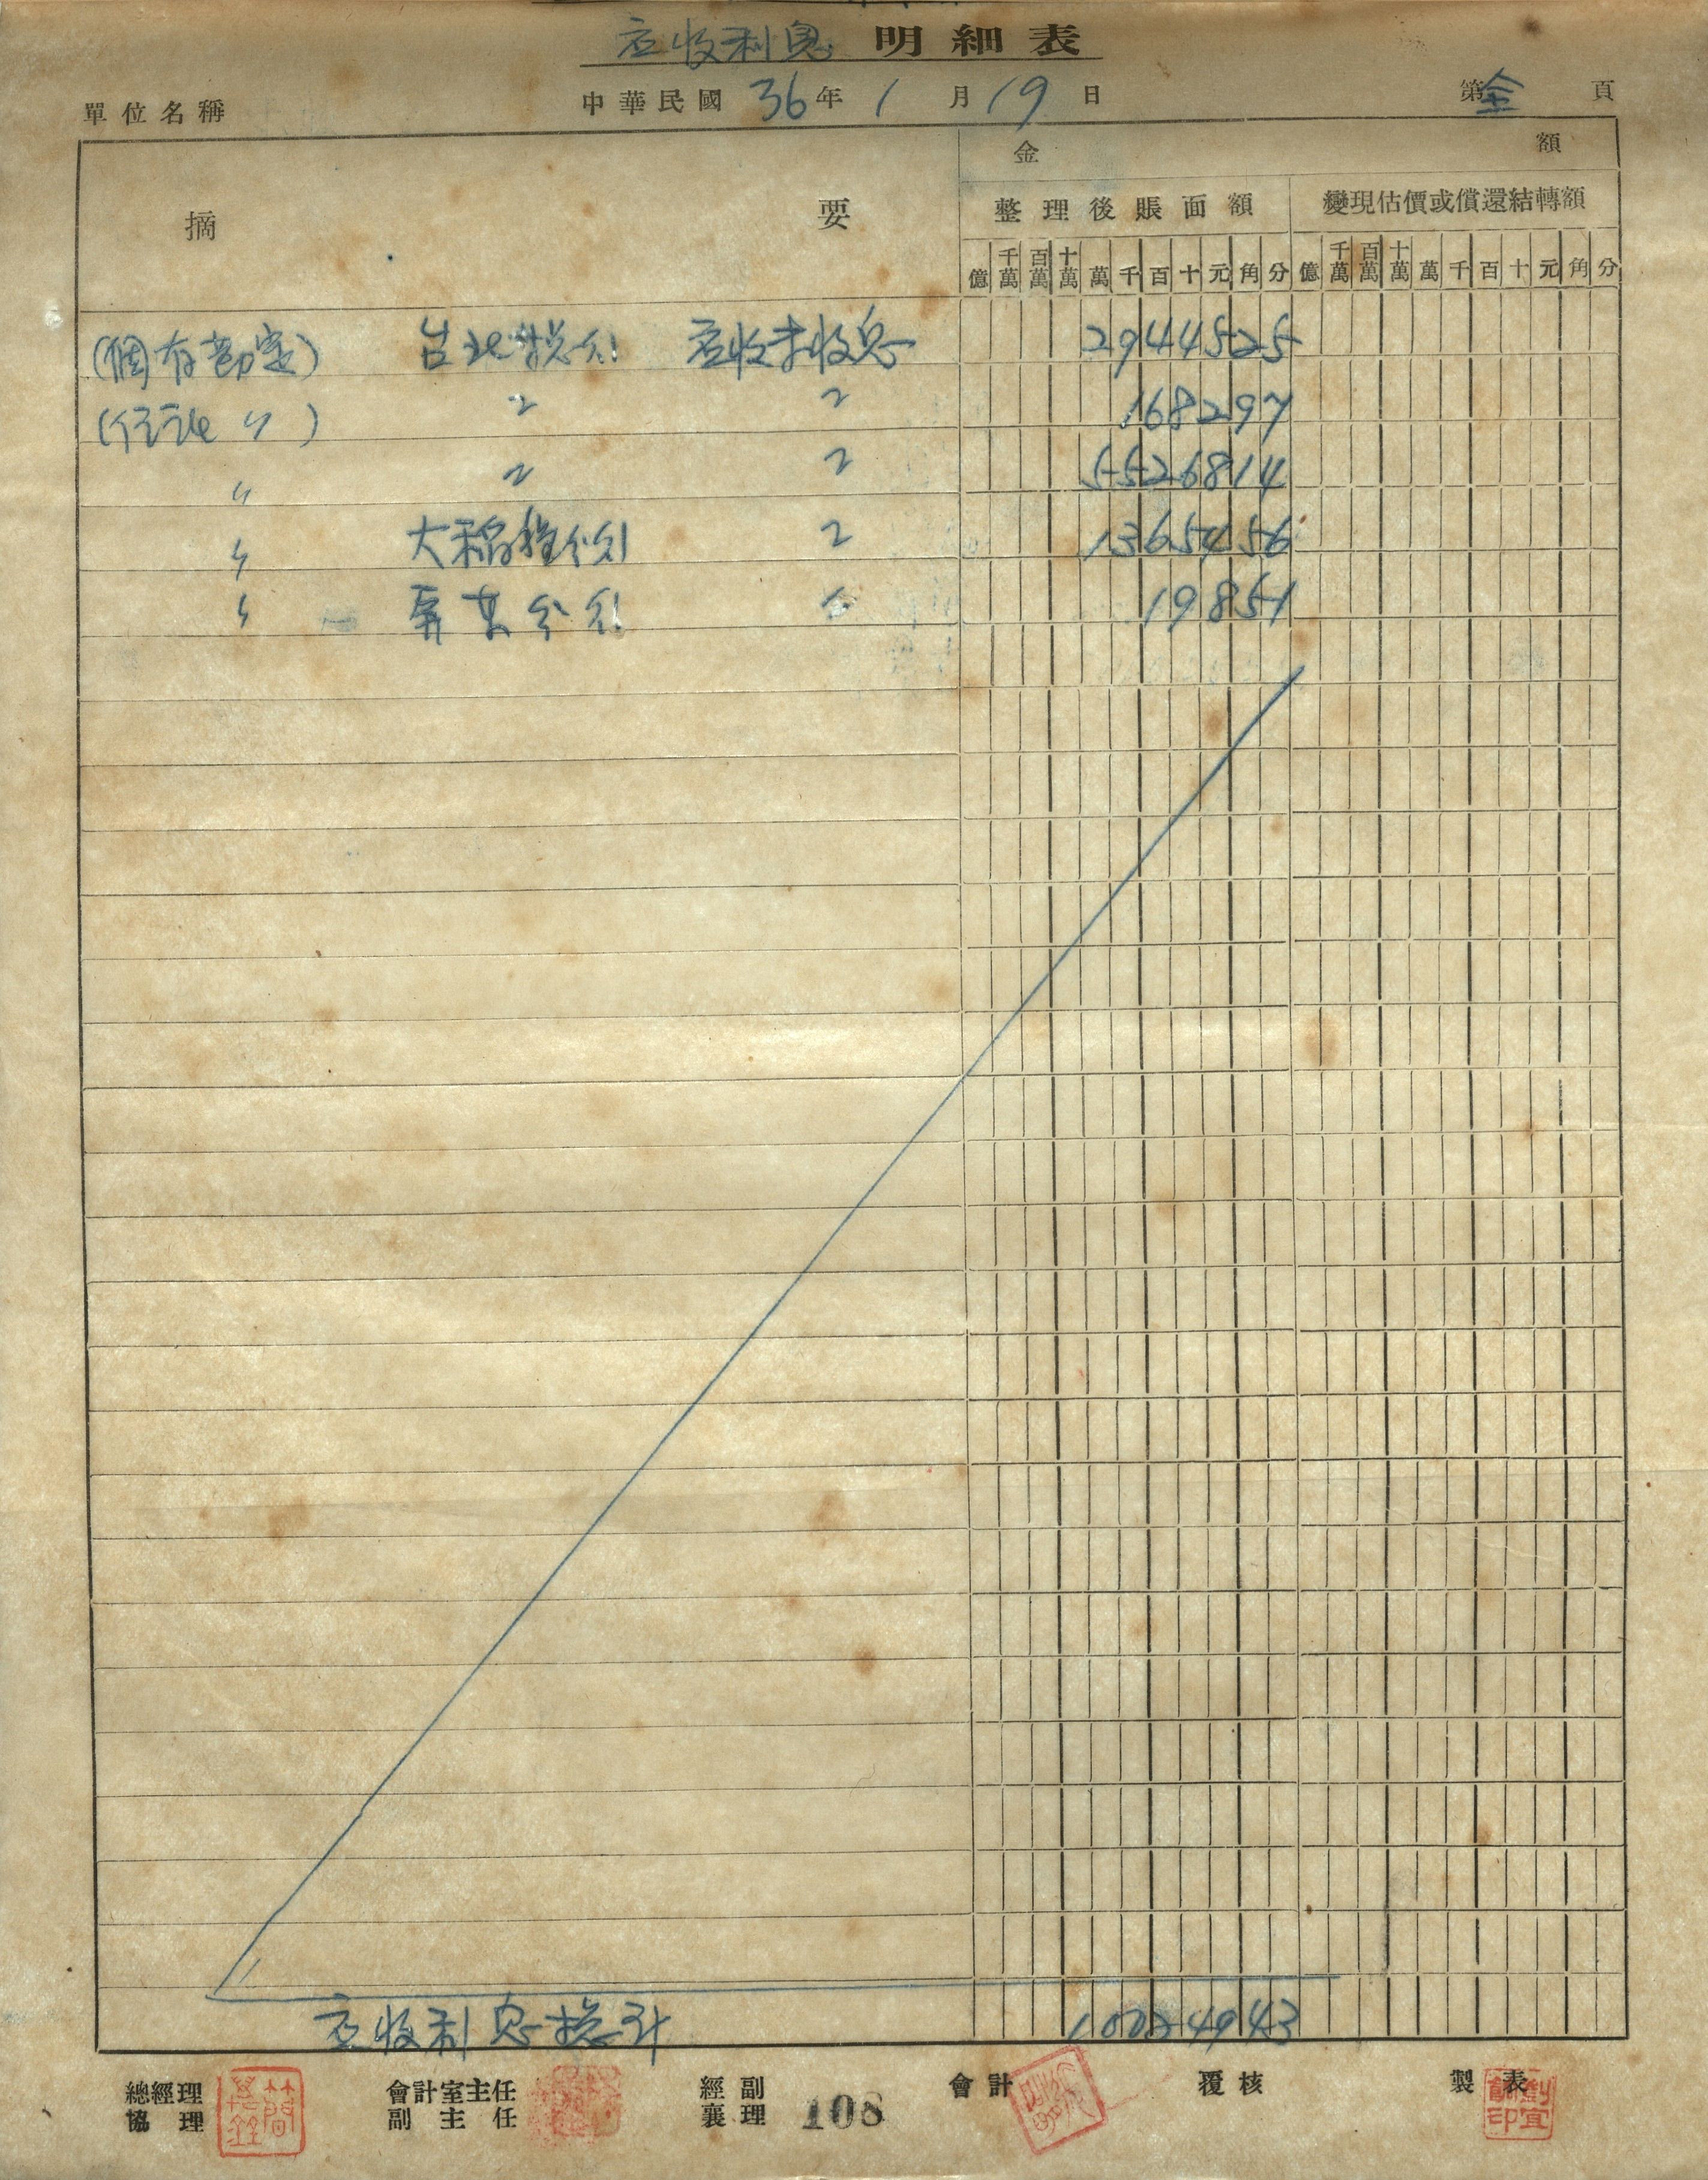 应收利息 明細表
單位名稱 中華民國 36 年 1 月 19 日 第全頁
摘要 金額
整理後賬面額 變現估價或償還結轉額
億 千萬 百萬 十萬 萬 千 百 十 元 角 分 億 千萬 百萬 十萬 萬 千 百 十 元 角 分
(個有勘定) 台北總行 应收未收息 2944525
(信託 〃 ) 〃 〃 168297
〃 〃 〃 5526814
〃 大稻埕分行 〃 1365456
〃 屏東分行 〃 19851
应收利息總計 10024943
總經理 會計室主任 經副 會計 覆核 製表
協理 副主任 襄理 108